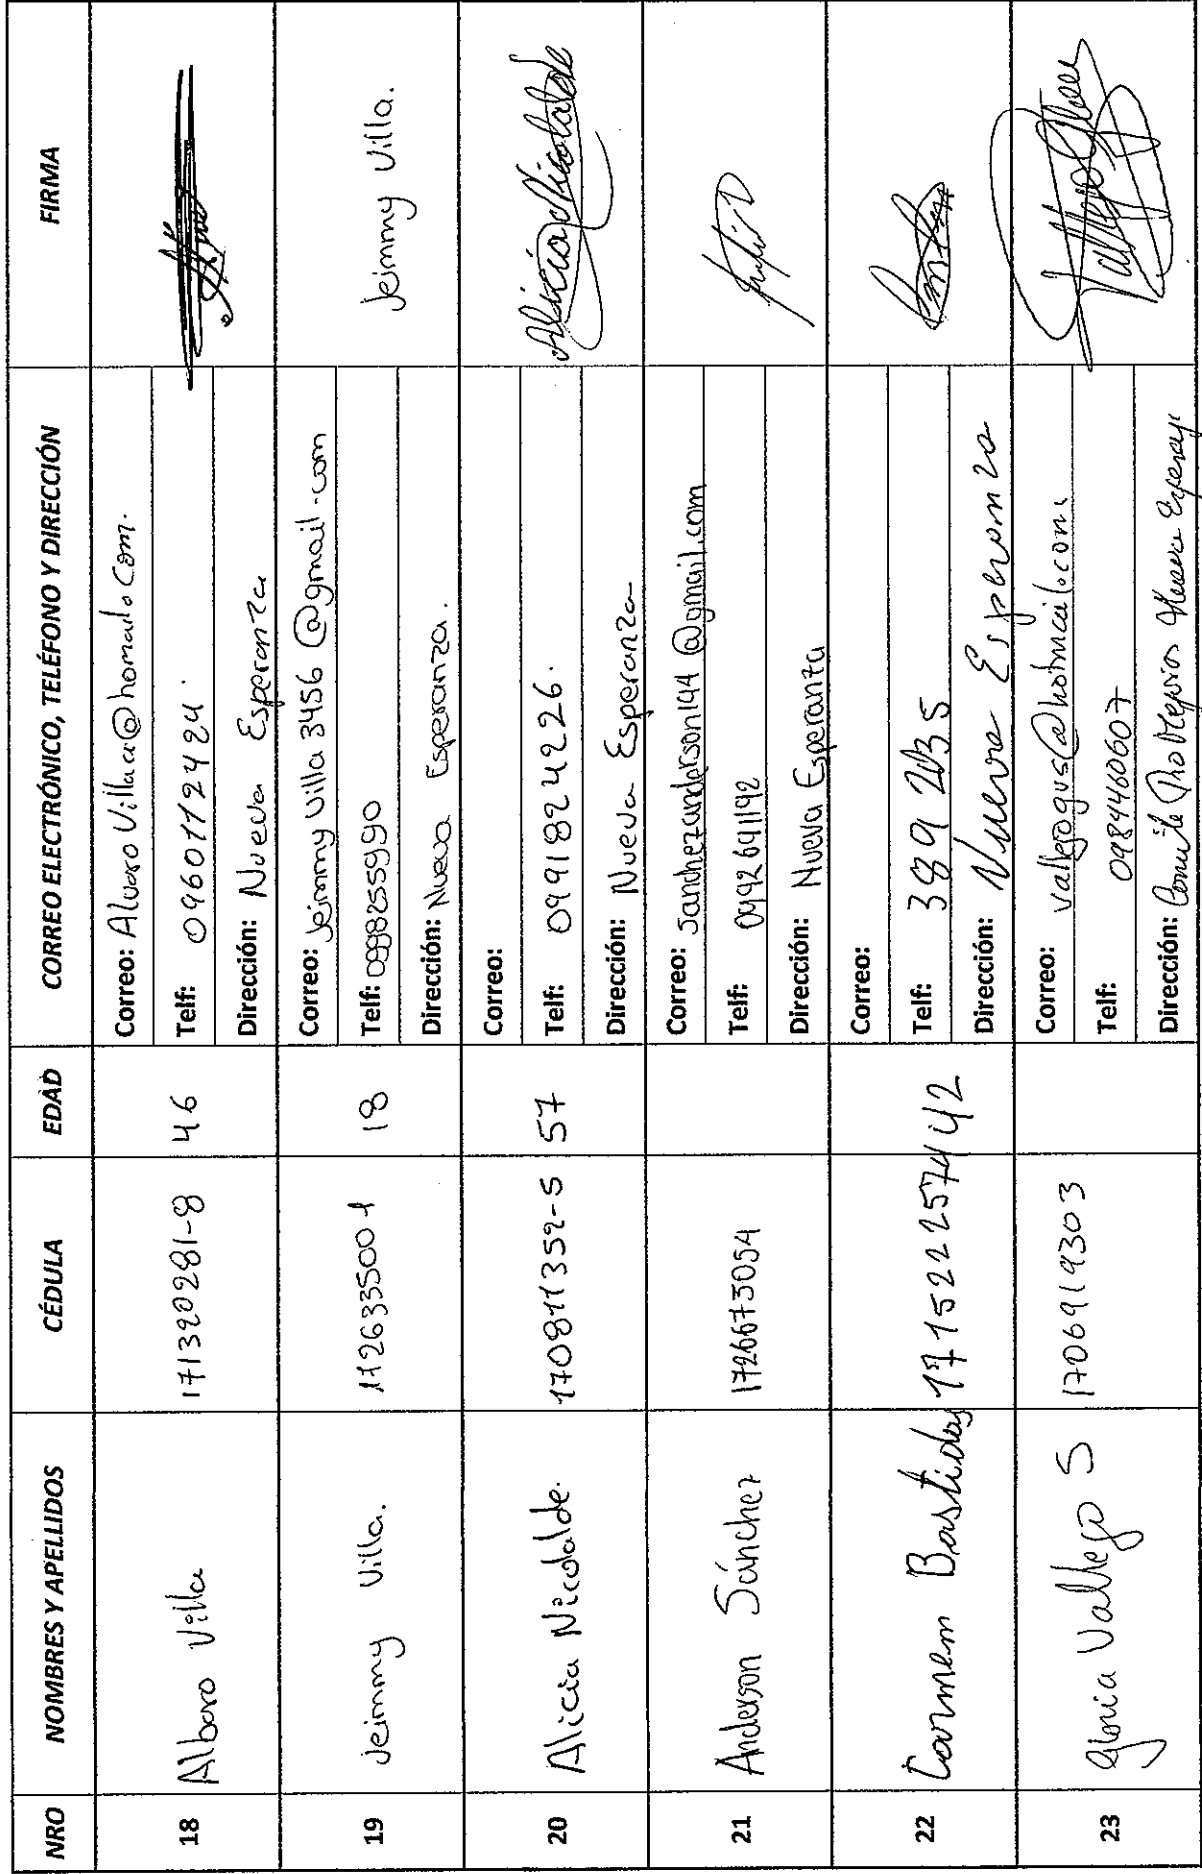 NRO NOMBRES Y APELLIDOS CÉDULA EDAD CORREO ELECTRÓNICO, TELÉFONO Y DIRECCIÓN FIRMA
18 Albaro Villa 171320281-8 46
Correo: AlvaroVilla@homail.Com.
Telf: 0960112424.
Dirección: Nueva Esperanza
19 Jeimmy Villa. 1726335001 18 Jeimmy Villa.
Correo: Jeimmy Villa 3456 @gmail.com
Telf: 0998255990
Dirección: Nueva Esperanza.
20 Alicia Nicolalde. 170811352-5 57 Alicia Nicolalde
Correo:
Telf: 0991824226.
Dirección: Nueva Esperanza
21 Anderson Sánchez 1726673054
Correo: Sanchezanderson144@gmail.com
Telf: 0992641192
Dirección: Nueva Esperanza
22 Carmen Bastidas 1715222574 42
Correo:
Telf: 389 2035
Dirección: Nueva Esperanza
23 Gloria Vallejo S 1706919303
Correo: vallejogus@hotmail.com
Telf: 0984460607
Dirección: Comité Pro Mejoras Nueva Esperanz